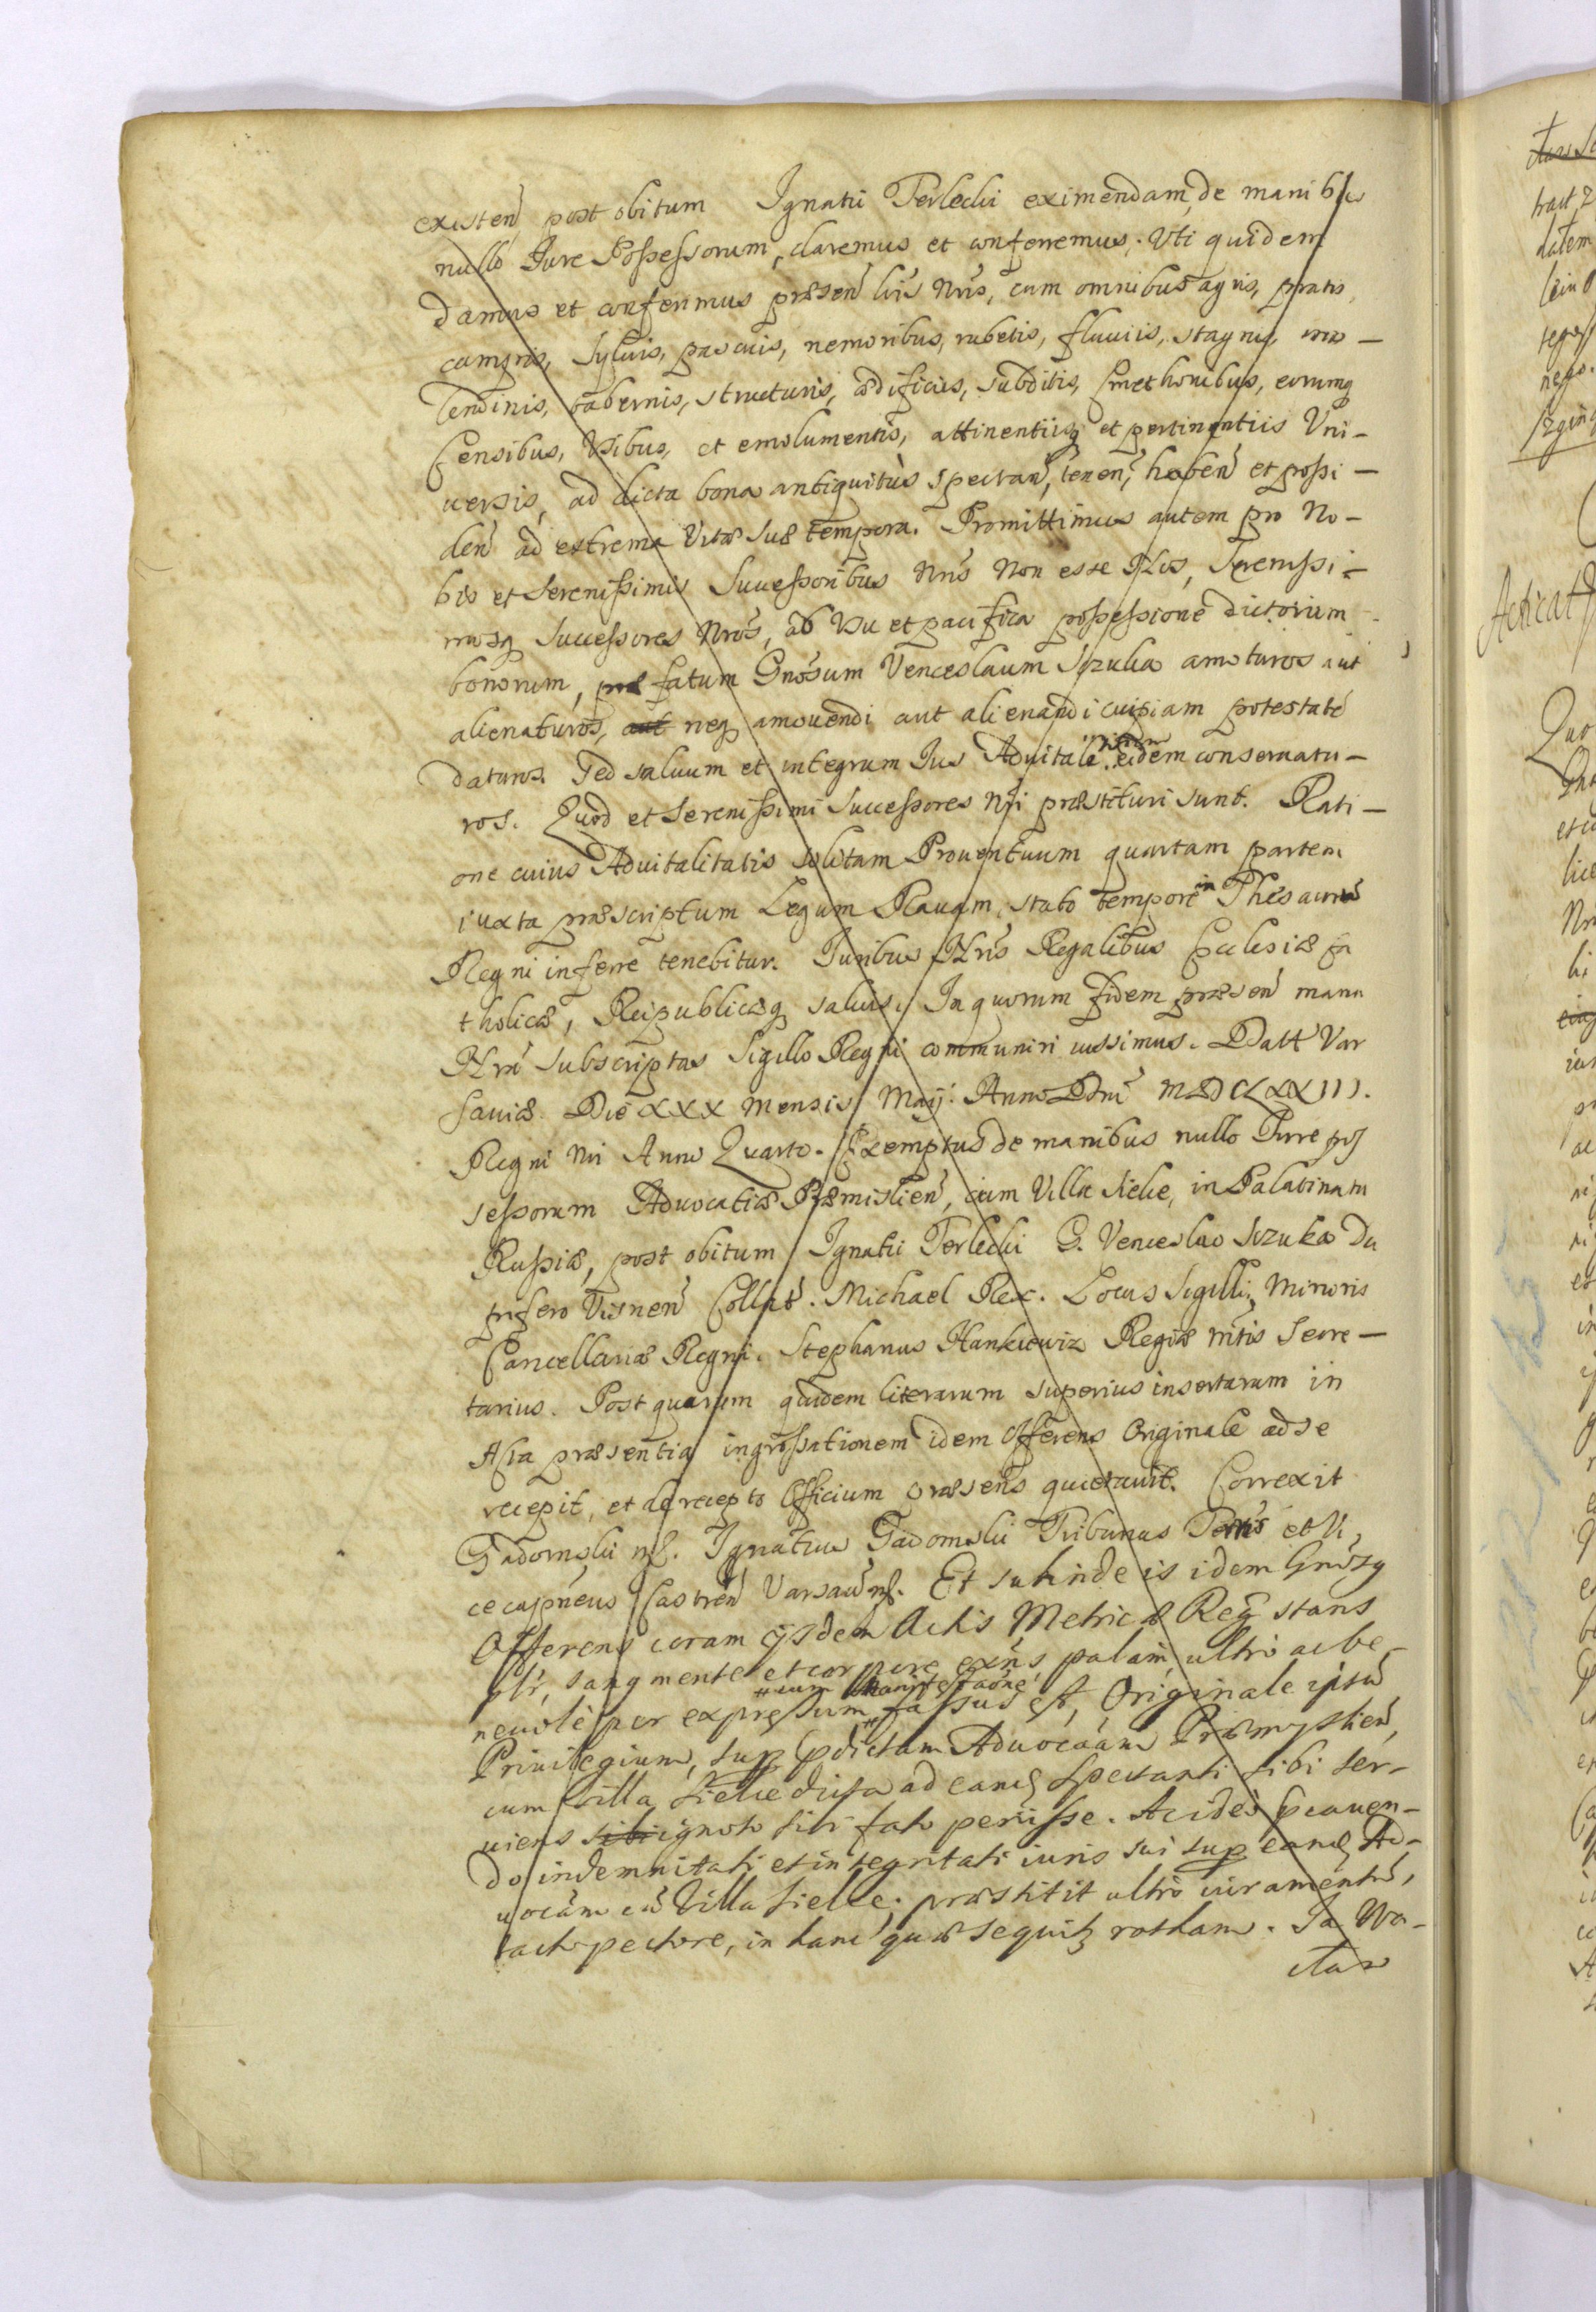 existen̄ post obitum Ignatii Terlecki eximendam, de manibus
nullo Jure Possessorum, daremus et conferremus. Uti quidem
damus et conferimus præsen̄ lris Nris, cum omnibus agris, pratis,
campis, sylvis, pascuis, nemoribus, rubetis, fluviis, stagnis, mo-
lendinis, tabernis, structuris, ædificiis, subditis, Cmethonibus, eorumq
Censibus, Usibus, et emolumentis, attinentiisq et pertinentiis Uni-
versis, ad dicta bona antiquitùs spectan̄, tenen̄, haben̄ et possi-
den̄ ad extrema Vitæ suæ tempora. Promittimus autem pro No-
bis et Serenissimis Successoribus Nris Non esse Nos, Serenissi-
mosq Successores Nros, ab Usu et pacifica possessione dictorum
bonorum, præfatum Gnosum Venceslaum Szuka amoturos aut
alienaturos, aut neq amovendi aut alienandi cuipiam potestatē
daturos. Sed salvum et integrum Jus Advitale eidem conservatu-
ros. Quod et Serenissimi Successores Nri præstituri sunt. Rati-
one cuius Advitalitatis solitam Proventuum quartam partem
iuxta præscriptum Legum Ravam, stato tempore in Thesaurū
Regni inferre tenebitur. Juribus Nris Regalibus Ecclesiæ Ca
tholicæ, Reipublicæq salvis. In quorum fidem præsen̄ manu
Nra subscriptas Sigillo Regni communiri iussimus. Datt Var
saviæ Die XXX Mensis Maij Anno Dni MDCLXXIII.
Regni Nri Anno Quarto. Exemptus de manibus nullo Jure pos
sessorum Advocatiæ Præmislien̄, cum Villa Sielce, in Palatinatu
Russiæ, post obitum Ignatii Terlecki G. Venceslao Szuka Da
pifero Visnen̄ Collat. Michael Rex. Locus Sigilli Minoris
Cancellariæ Regni. Stephanus Hankiewicz Regiæ Mtis Secre-
tarius. Post quarum quidem literarum superius insertarum in
Acta præsentia ingrossationem idem Offerens Originale ad se
recepit, et de recepto Officium præsens quietavit. Correxit
Gadomski mp. Ignatius Gadomski Tribunus Terris et Vi,
cecapneus Castren̄ Varsavien mp. Et subinde is idem Gnosq
Offerens coram ijsdem Actis Metricæ Regñ stans
plr, sanq mente et corpore exns palam, ultrò ac be-
nevolè per expressum # fassus est, Originale ipsū
# cum manifestaōne
Privilegium, sup pdictam Advocāām Præmyslien̄,
cum villa Sielce dicta ad eand spectanti sibi ser-
viens sibi ignoto sibi fato periisse. Ac ideò cauen-
do indemnitati et integritati iuris sui sup eand Ad-
vocām cū Villa Sielce, præstitit ultrò iuramentū,
tacto pectore, in hanc quæ sequitz rotham. Ja Wa-
cław